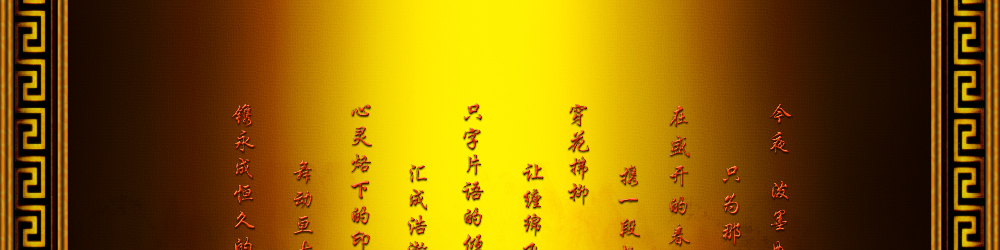 今夜 泼墨
只为那
在盛开的春
携一段
穿花拂柳
让缠绵
只字片语的
汇成浩
心灵烙下的印
舞动亘
镌永成恒久的